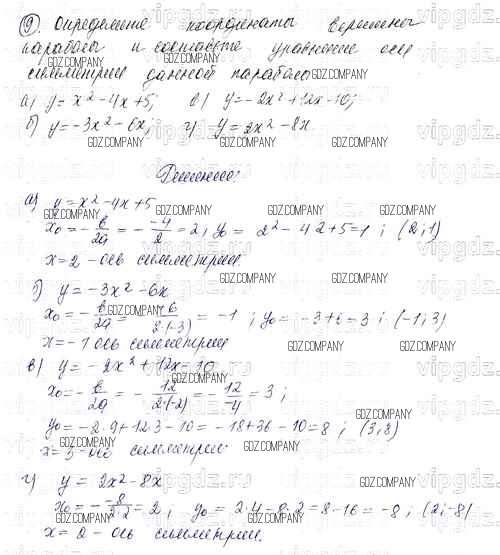 9. Определите координаты вершины
параболы и составьте уравнение оси
симметрии данной параболы
GDZ.COMPANY
а) y = x² - 4x + 5; в) y = -2x² + 12x - 10;
б) y = -3x² - 6x; г) y = 2x² - 8x
Решение:
а) y = x² - 4x + 5
x₀ = - в/2a = - -4/2 = 2, y₀ = 2² - 4·2 + 5 = 1; (2; 1)
x = 2 - ось симметрии
б) y = -3x² - 6x
x₀ = - в/2a = - -6/2·(-3) = -1; y₀ = -3 + 6 = 3; (-1; 3)
x = -1 ось симметрии
в) y = -2x² + 12x - 10
x₀ = - в/2a = - 12/2·(-2) = - 12/-4 = 3;
y₀ = -2·9 + 12·3 - 10 = -18 + 36 - 10 = 8; (3; 8)
x = 3 - ось симметрии
г) y = 2x² - 8x
x₀ = - -8/2·2 = 2, y₀ = 2·4 - 8·2 = 8 - 16 = -8; (2; -8)
x = 2 - ось симметрии.
vipgdz.ru